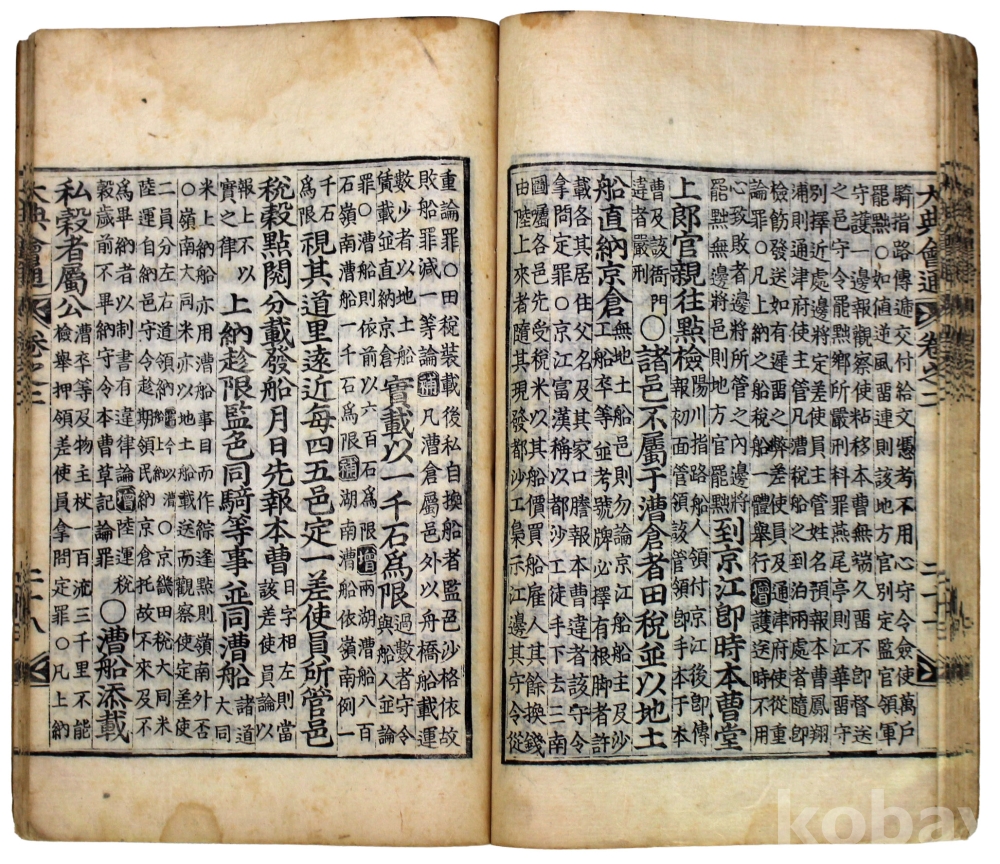 大典會通 卷之二 二十七
騎指路傳遞交付給文憑考不用心守令僉使萬戶
罷黜○如値逆風留連則該地方官別定監官領軍
守護一邊報觀察使粘移本曹無端久留不卽督送
之邑守令罷黜鄕所嚴刑科罪燕尾亭則江華留守
別擇近處邊將定差使員主管姓名預報本曹鳳翔
浦則通津府使主管凡漕稅船之到泊兩處者隨卽
檢飭發送如有遲留之弊差使員及通津府使從重
論罪○凡上納之船稅船一體擧行增護送時不用
心致敗者邊將所管之內邊將
罷黜無邊將邑則地方官罷黜
到京江卽時本曹堂
上郞官親往點檢
陽川指路船人領付京江後卽傳
報初面管領該管領卽手本于本
曹及該衙門
違者嚴刑
○諸邑不屬于漕倉者田稅並以地土
船直納京倉
無地土船邑則勿論京江船船主及沙
工船卒等並考號牌必擇有根脚者許
載各其居住父名及其家口謄報本曹違者該守令
拿問定罪○京江富漢稱以都沙工徒手下去三南
圖囑各邑先受稅米以其船價買船雇人其餘換錢
由陸上來者隨其現發都沙工梟示江邊其守令從
重論罪○田稅裝載後私自換船者監邑沙格依故
敗船罪減一等論補凡漕倉屬邑外以舟橋船載運
數少者以地土船
賃載並直納
實載以一千石爲限
過數者守令
與船人並論
罪○漕船則依前以六百石爲限增兩湖漕船八百
石嶺南漕船一千石爲限補湖南漕船依嶺南例一
千石
爲限
視其道里遠近每四五邑定一差使員所管邑
稅穀點閱分載發船月日先報本曹
日字相左則當
該差使員論以
報上不以
實之律
上納趁限監色同騎等事並同漕船
諸道
大同
米上納船亦用漕船事目而作綜逢點則嶺南外否
○嶺南大同米亦以船載送而觀察使定差使
二員分左右道領納 ○京畿田稅大同米
陸運自納邑守令趁期領民納京倉托故不來及不
爲畢納者以制書有違律論增陸運稅
穀歲前不畢納守令本曹草記論罪
○漕船添載
私穀者屬公
漕卒等及物主杖一百流三千里不能
檢擧押領差使員拿問定罪○凡上納
大典會通 卷之二 二十八
kobay